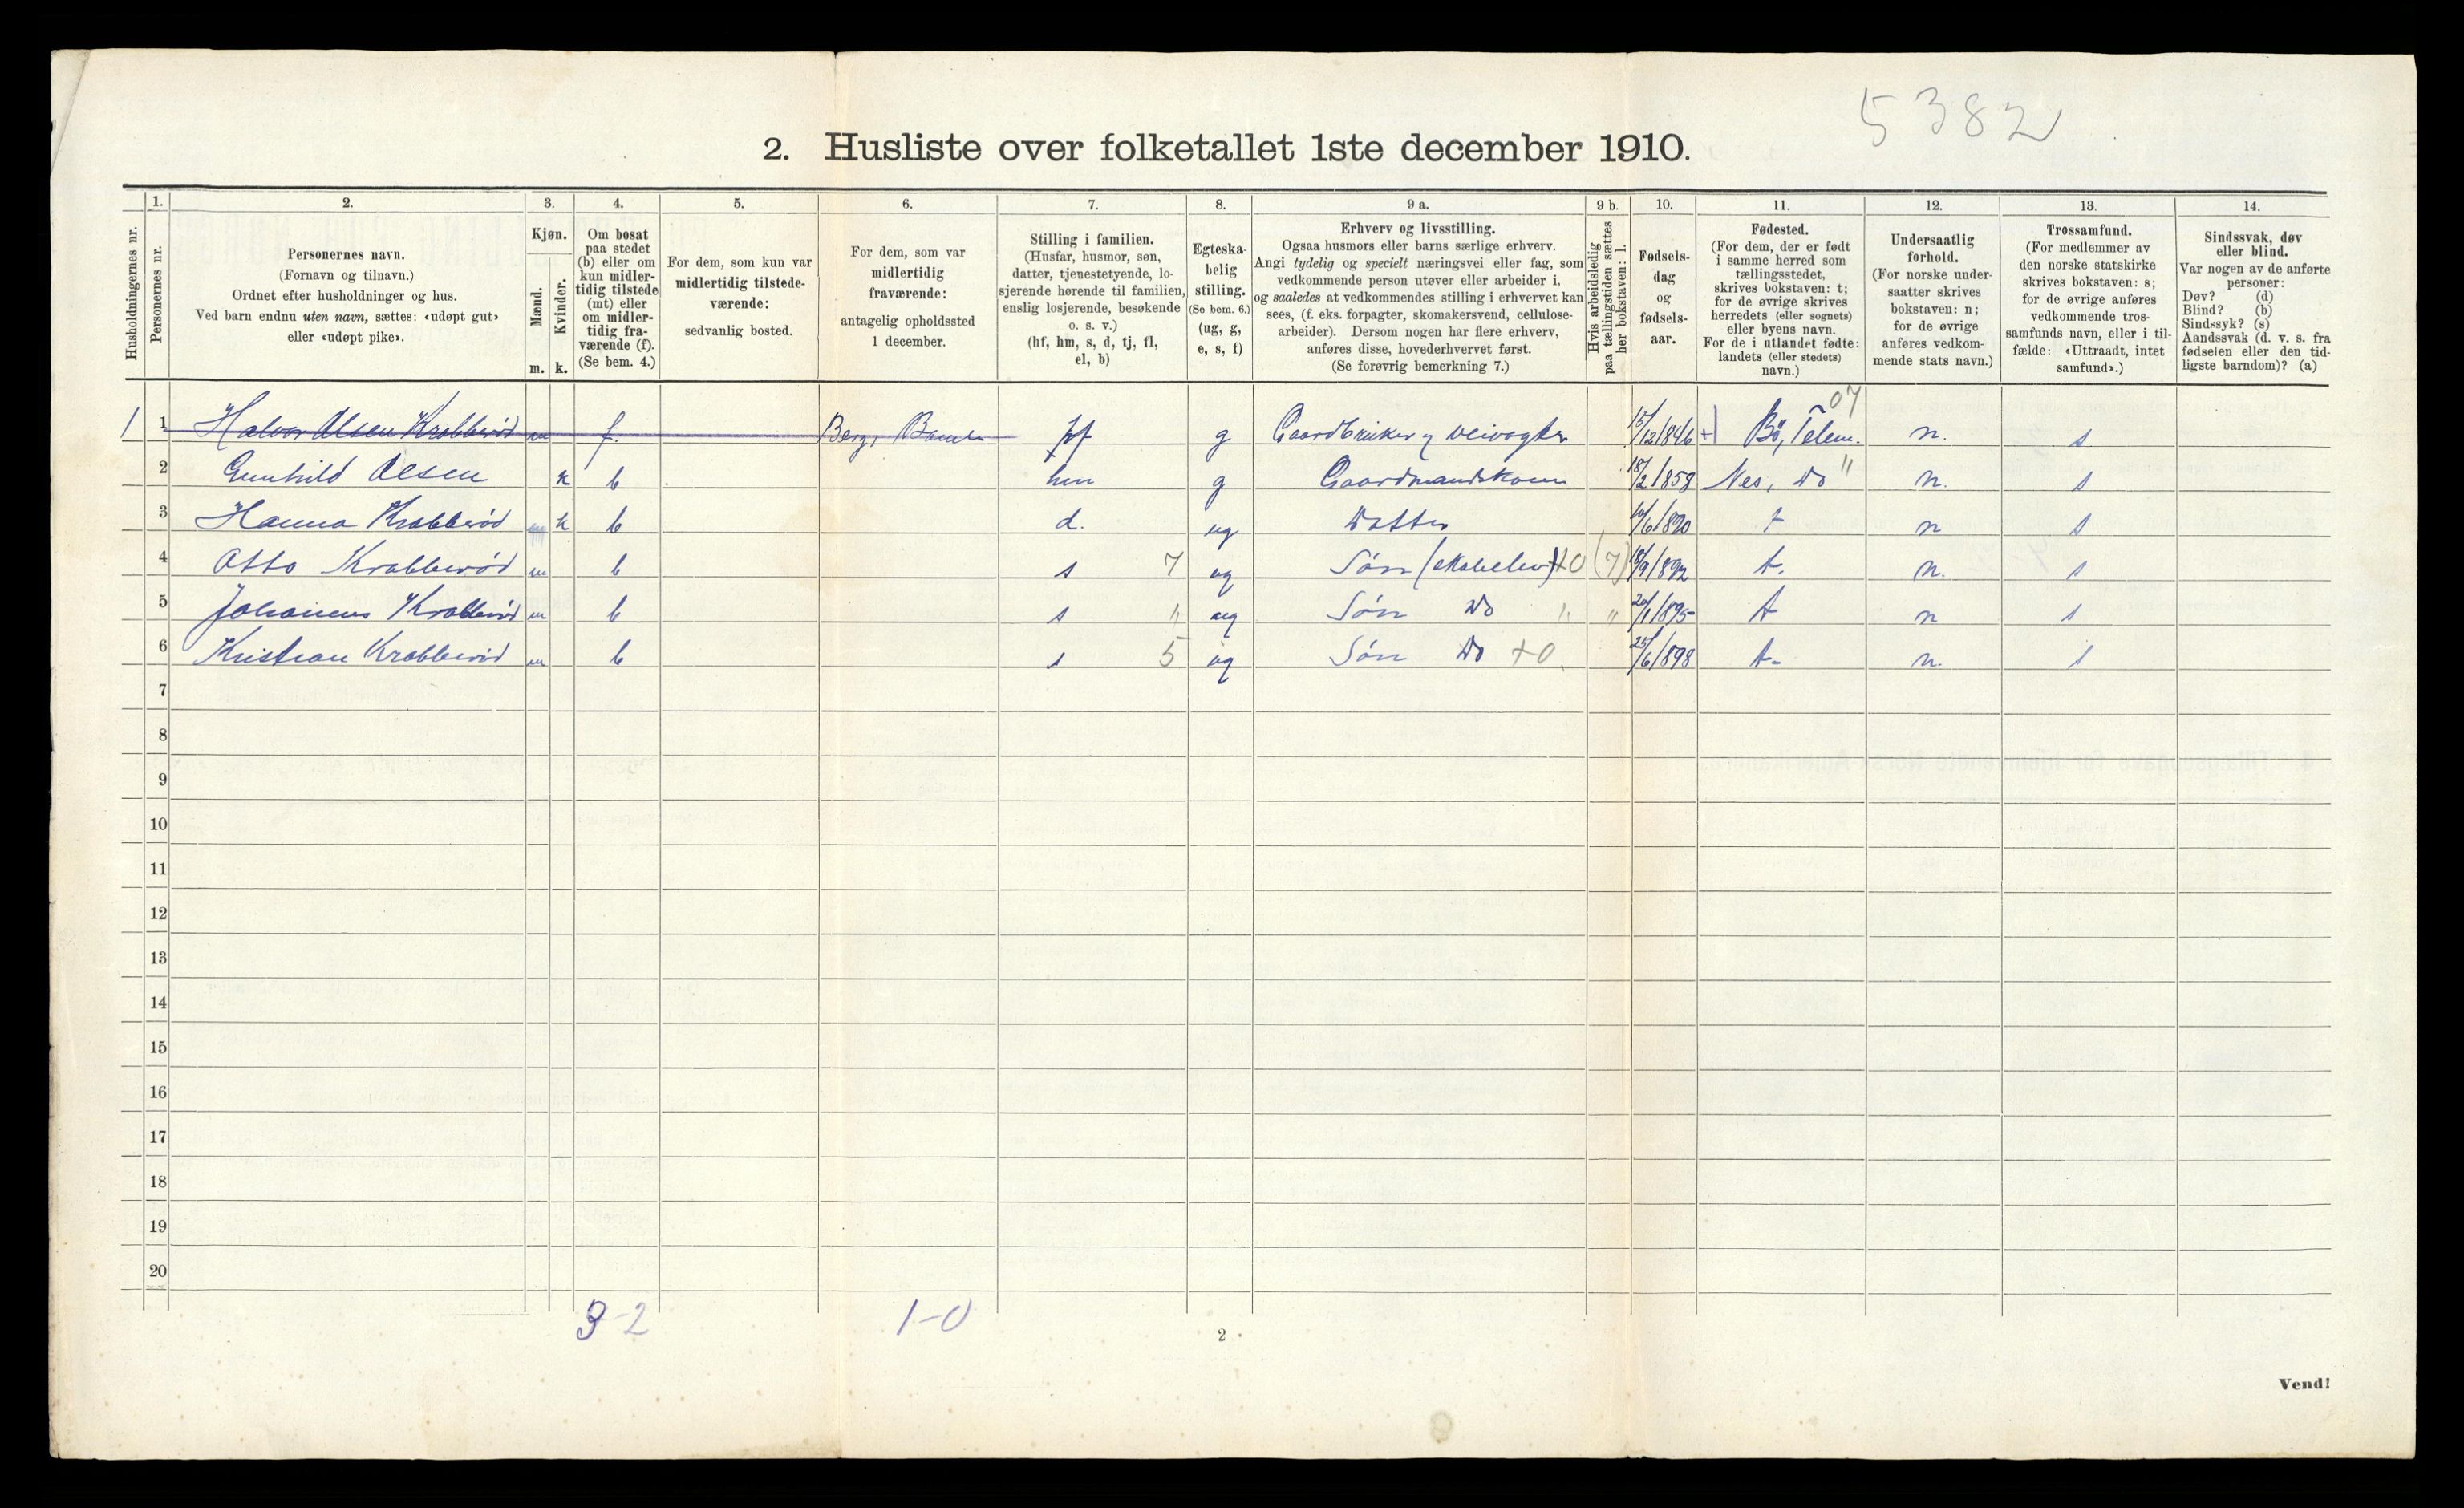 5382
2. Husliste over folketallet 1ste december 1910.
Husholdningernes nr.
1.
Personernes nr.
2.
Personernes navn.
(Fornavn og tilnavn.)
Ordnet efter husholdninger og hus.
Ved barn endnu uten navn, sættes: «udøpt gut»
eller «udøpt pike».
3.
Kjøn.
Mænd.
Kvinder.
m. k.
4.
Om bosat
paa stedet
(b) eller om
kun midler-
tidig tilstede
(mt) eller
om midler-
tidig fra-
værende (f).
(Se bem. 4.)
5.
For dem, som kun var
midlertidig tilstede-
værende:
sedvanlig bosted.
6.
For dem, som var
midlertidig
fraværende:
antagelig opholdssted
1 december.
7.
Stilling i familien.
(Husfar, husmor, søn,
datter, tjenestetyende, lo-
sjerende hørende til familien,
enslig losjerende, besøkende
o. s. v.)
(hf, hm, s, d, tj, fl,
el, b)
8.
Egteska-
belig
stilling.
(Se bem. 6.)
(ug, g,
e, s, f)
9 a.
Erhverv og livsstilling.
Ogsaa husmors eller barns særlige erhverv.
Angi tydelig og specielt næringsvei eller fag, som
vedkommende person utøver eller arbeider i,
og saaledes at vedkommendes stilling i erhvervet kan
sees, (f. eks. forpagter, skomakersvend, cellulose-
arbeider). Dersom nogen har flere erhverv,
anføres disse, hovederhvervet først.
(Se forøvrig bemerkning 7.)
9 b.
Hvis arbeidsledig
paa tællingstiden sættes
her bokstaven: l.
10.
Fødsels-
dag
og
fødsels-
aar.
11.
Fødested.
(For dem, der er født
i samme herred som
tællingsstedet,
skrives bokstaven: t;
for de øvrige skrives
herredets (eller sognets)
eller byens navn.
For de i utlandet fødte:
landets (eller stedets)
navn.)
12.
Undersaatlig
forhold.
(For norske under-
saatter skrives
bokstaven: n;
for de øvrige
anføres vedkom-
mende stats navn.)
13.
Trossamfund.
(For medlemmer av
den norske statskirke
skrives bokstaven: s;
for de øvrige anføres
vedkommende tros-
samfunds navn, eller i til-
fælde: «Uttraadt, intet
samfund».)
14.
Sindssvak, døv
eller blind.
Var nogen av de anførte
personer:
Døv? (d)
Blind? (b)
Sindssyk? (s)
Aandssvak (d. v. s. fra
fødselen eller den tid-
ligste barndom)? (a)
07
1 1 Halvor Olsen Krabberød m f. Berg, Bamle hf g Gaardbruker og veivogter 15/12 1846 Bø, Telem. n. s
2 Gunhild Olsen k b hm g Gaardmandskone 18/2 1858 Nes, Do " n. s
3 Hanna Krabberød k b d. ug Datter 10/6 1890 t n s
4 Otto Krabberød m b s 7 ug Søn +0 (7) 18/9 1892 t. n. s
5 Johannes Krabberød m b s " ug Søn Do " " 20/1 1895 t n s
6 Kristian Krabberød m b s 5 ug Søn Do +0 25/6 1898 t. n. s
7
8
9
10
11
12
13
14
15
16
17
18
19
20
3-2 1-0
2
Vend!